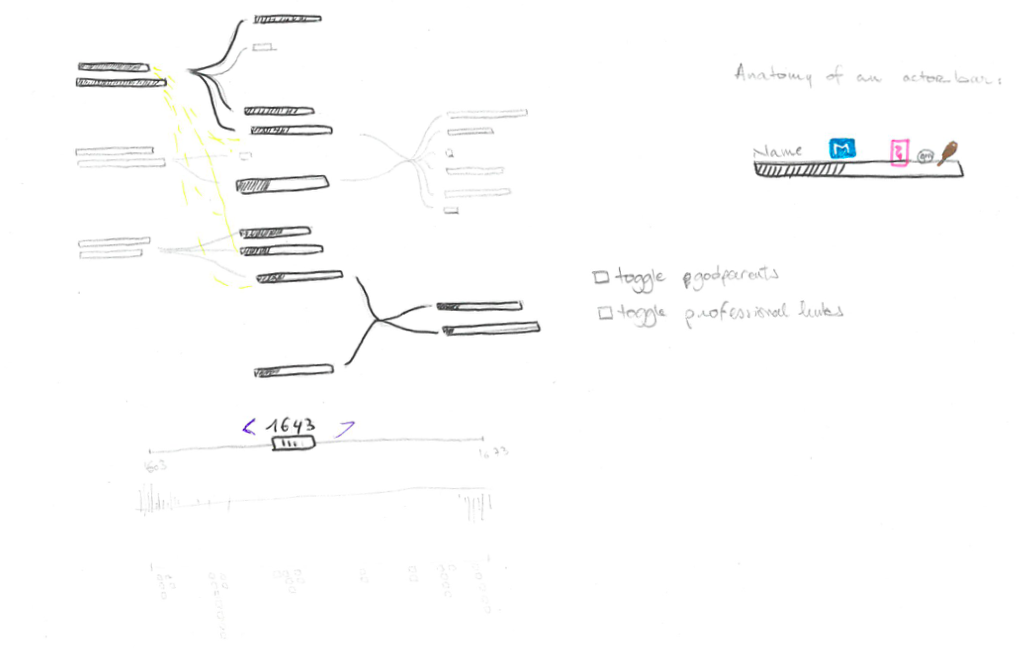 Anatomy of an actor bar:
Name
M
toggle godparents
toggle professional links
< 1643 >
1603